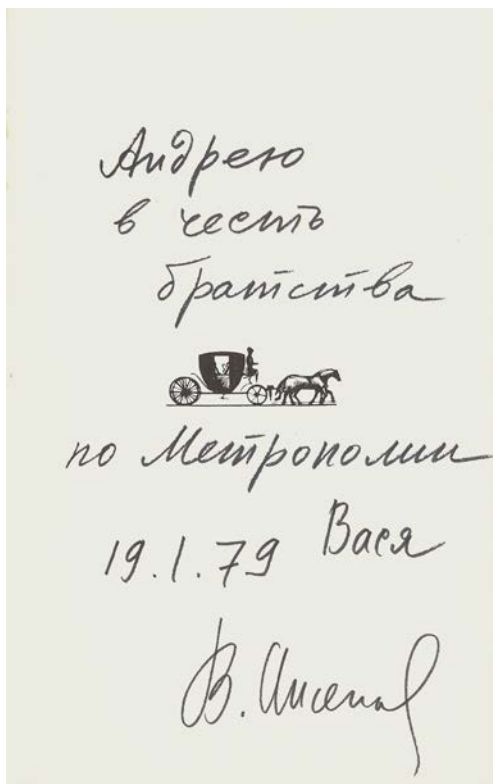 Андрею
в честь
братства
по Метрополии
Вася
19.1.79
В. Аксенов